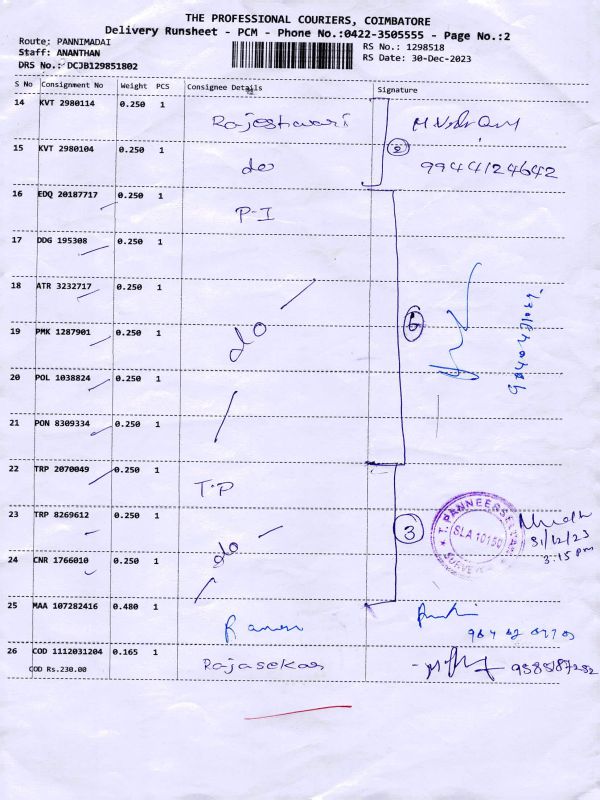 THE PROFESSIONAL COURIERS, COIMBATORE
Delivery Runsheet - PCM - Phone No.:0422-3505555 - Page No.:2
Route: PANNIMADAI
Staff: ANANTHAN
DRS No.: DCJB129851802
RS No.: 1298518
RS Date: 30-Dec-2023
S No Consignment No Weight PCS Consignee Details Signature
14 KVT 2980114 0.250 1 Rajeshwari
15 KVT 2980104 0.250 1 do 2 9944124642
16 EDQ 20187717 0.250 1 P-I
17 DDG 195308 0.250 1
18 ATR 3232717 0.250 1
19 PMK 1287901 0.250 1 do 6
20 POL 1038824 0.250 1
21 PON 8309334 0.250 1
22 TRP 2070049 0.250 1 T.P
23 TRP 8269612 0.250 1 3
T. PANNEERSELVAM
SLA 10150
SURVEYOR
31/12/23
3:15 pm
24 CNR 1766010 0.250 1 do
25 MAA 107282416 0.480 1 Raman
26 COD 1112031204 0.165 1 Rajasekar
COD Rs.230.00